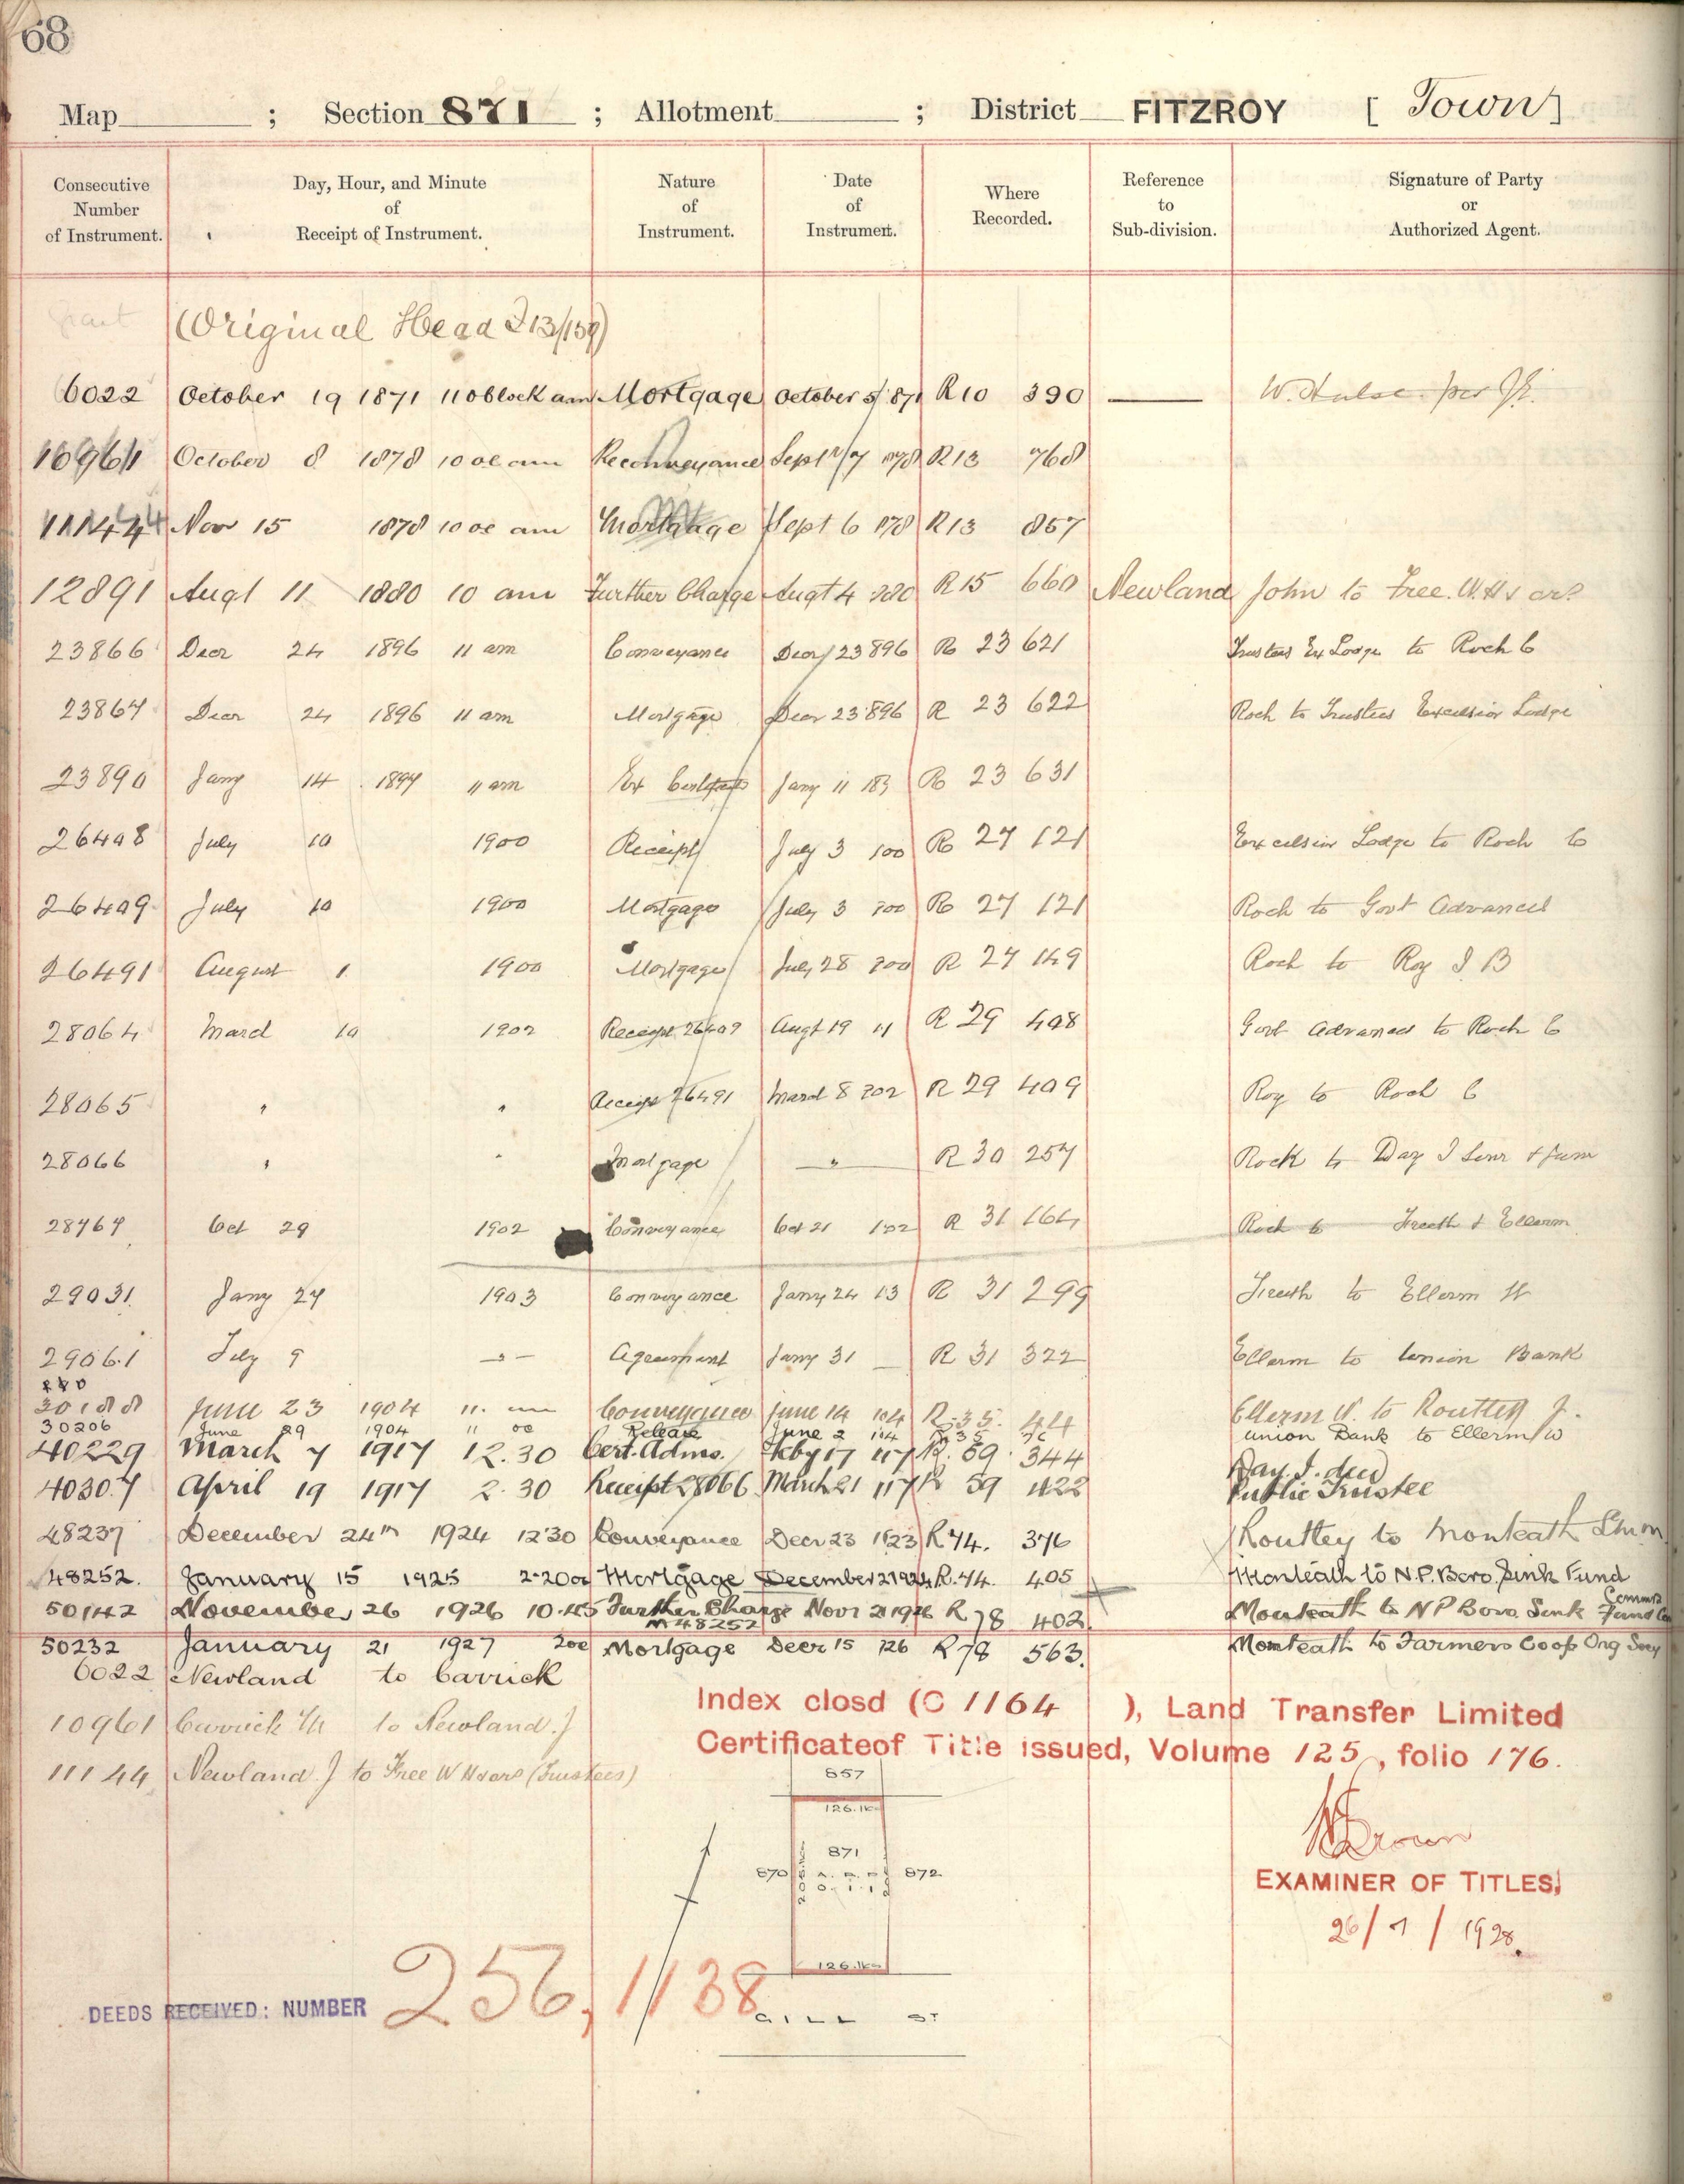 68
Map ; Section 871 ; Allotment ; District FITZROY [ Town ]
Consecutive Number of Instrument. Day, Hour, and Minute of Receipt of Instrument. Nature of Instrument. Date of Instrument. Where Recorded. Reference to Sub-division. Signature of Party or Authorized Agent.
Grant (Original Head I 13/159)
6022 October 19 1871 11 oblock am Mortgage October 5/871 R10 390 — W. Hulse per
10961 October 8 1878 10 oc am Reconveyance Sept 1878 R13 768
11144 Nov 15 1878 10 oc am Mortgage Sept 6 878 R13 857
12891 Augt 11 1880 10 am Further Charge Augt 4 880 R15 660 Newland John to Free. W.H & ors
23866 Decr 24 1896 11 am Conveyance Decr 23 896 R 23 621 Trustees Ex Lodge to Roch C
23867 Decr 24 1896 11 am Mortgage Decr 23 896 R 23 622 Roch to Trustees Excelsior Lodge
23890 Jany 14 1897 11 am Ex Certificate Jany 11 R 23 631
26408 July 10 1900 Receipt July 3 100 R 27 121 Excelsior Lodge to Roch C
26409 July 10 1900 Mortgage July 3 900 R 27 121 Roch to Govt Advances
26491 August 1 1900 Mortgage July 28 900 R 27 149 Roch to Roy J B
28064 March 10 1902 Receipt 26409 Augt 19 11 R 29 408 Govt Advances to Roch C
28065 " " Receipt 26491 March 8 902 R 29 409 Roy to Roch C
28066 " " Mortgage — " — R 30 257 Rock to Day J Senr & Junr
28767 Oct 29 1902 Conveyance Oct 21 102 R 31 164 Roch to Freeth & Ellerm
29031 Jany 27 1903 Conveyance Jany 24 13 R 31 299 Freeth to Ellerm W
29061 Feby 9 — " — Agreement Jany 31 — R 31 322 Ellerm to Union Bank
30188 June 23 1904 11. am Conveyance June 14 104 R.35. 44 Ellerm W. to Routley J.
30206 June 29 1904 11 oc Release June 2 104 R 35 Union Bank to Ellerm W
40229 March 7 1917 12.30 Cert. Adms. Feby 17 117 R. 59. 344 Day J. decd
40307 April 19 1917 2.30 Receipt 28066 March 21 117 R 59 422 Public Trustee
48237 December 24th 1924 12.30 Conveyance Decr 23 1923 R74. 376 Routley to Monteath
48252. January 15 1925 2-20oc Mortgage December 2 1924 R.74. 405 Monteath to N.P. Boro. Sink Fund
50142 November 26 1926 10.45 Further Charge M 48252 Novr 2 1926 R 78 402. Monteath to N P Boro. Sink Fund Comms
50232 January 21 1927 2oc Mortgage Decr 15 926 R78 563. Monteath to Farmers Coop Org Socy
6022 Newland to Carrick
10961 Carrick to Newland. J
11144 Newland J to Free W H & ors (Trustees)
Index closd (C 1164 ), Land Transfer Limited
Certificate of Title issued, Volume 125, folio 176.
857
126.1
871
870 872
0. 1. 1
126.1
GILL ST
Brown
EXAMINER OF TITLES,
26/7/1928.
DEEDS RECEIVED: NUMBER 256,1138